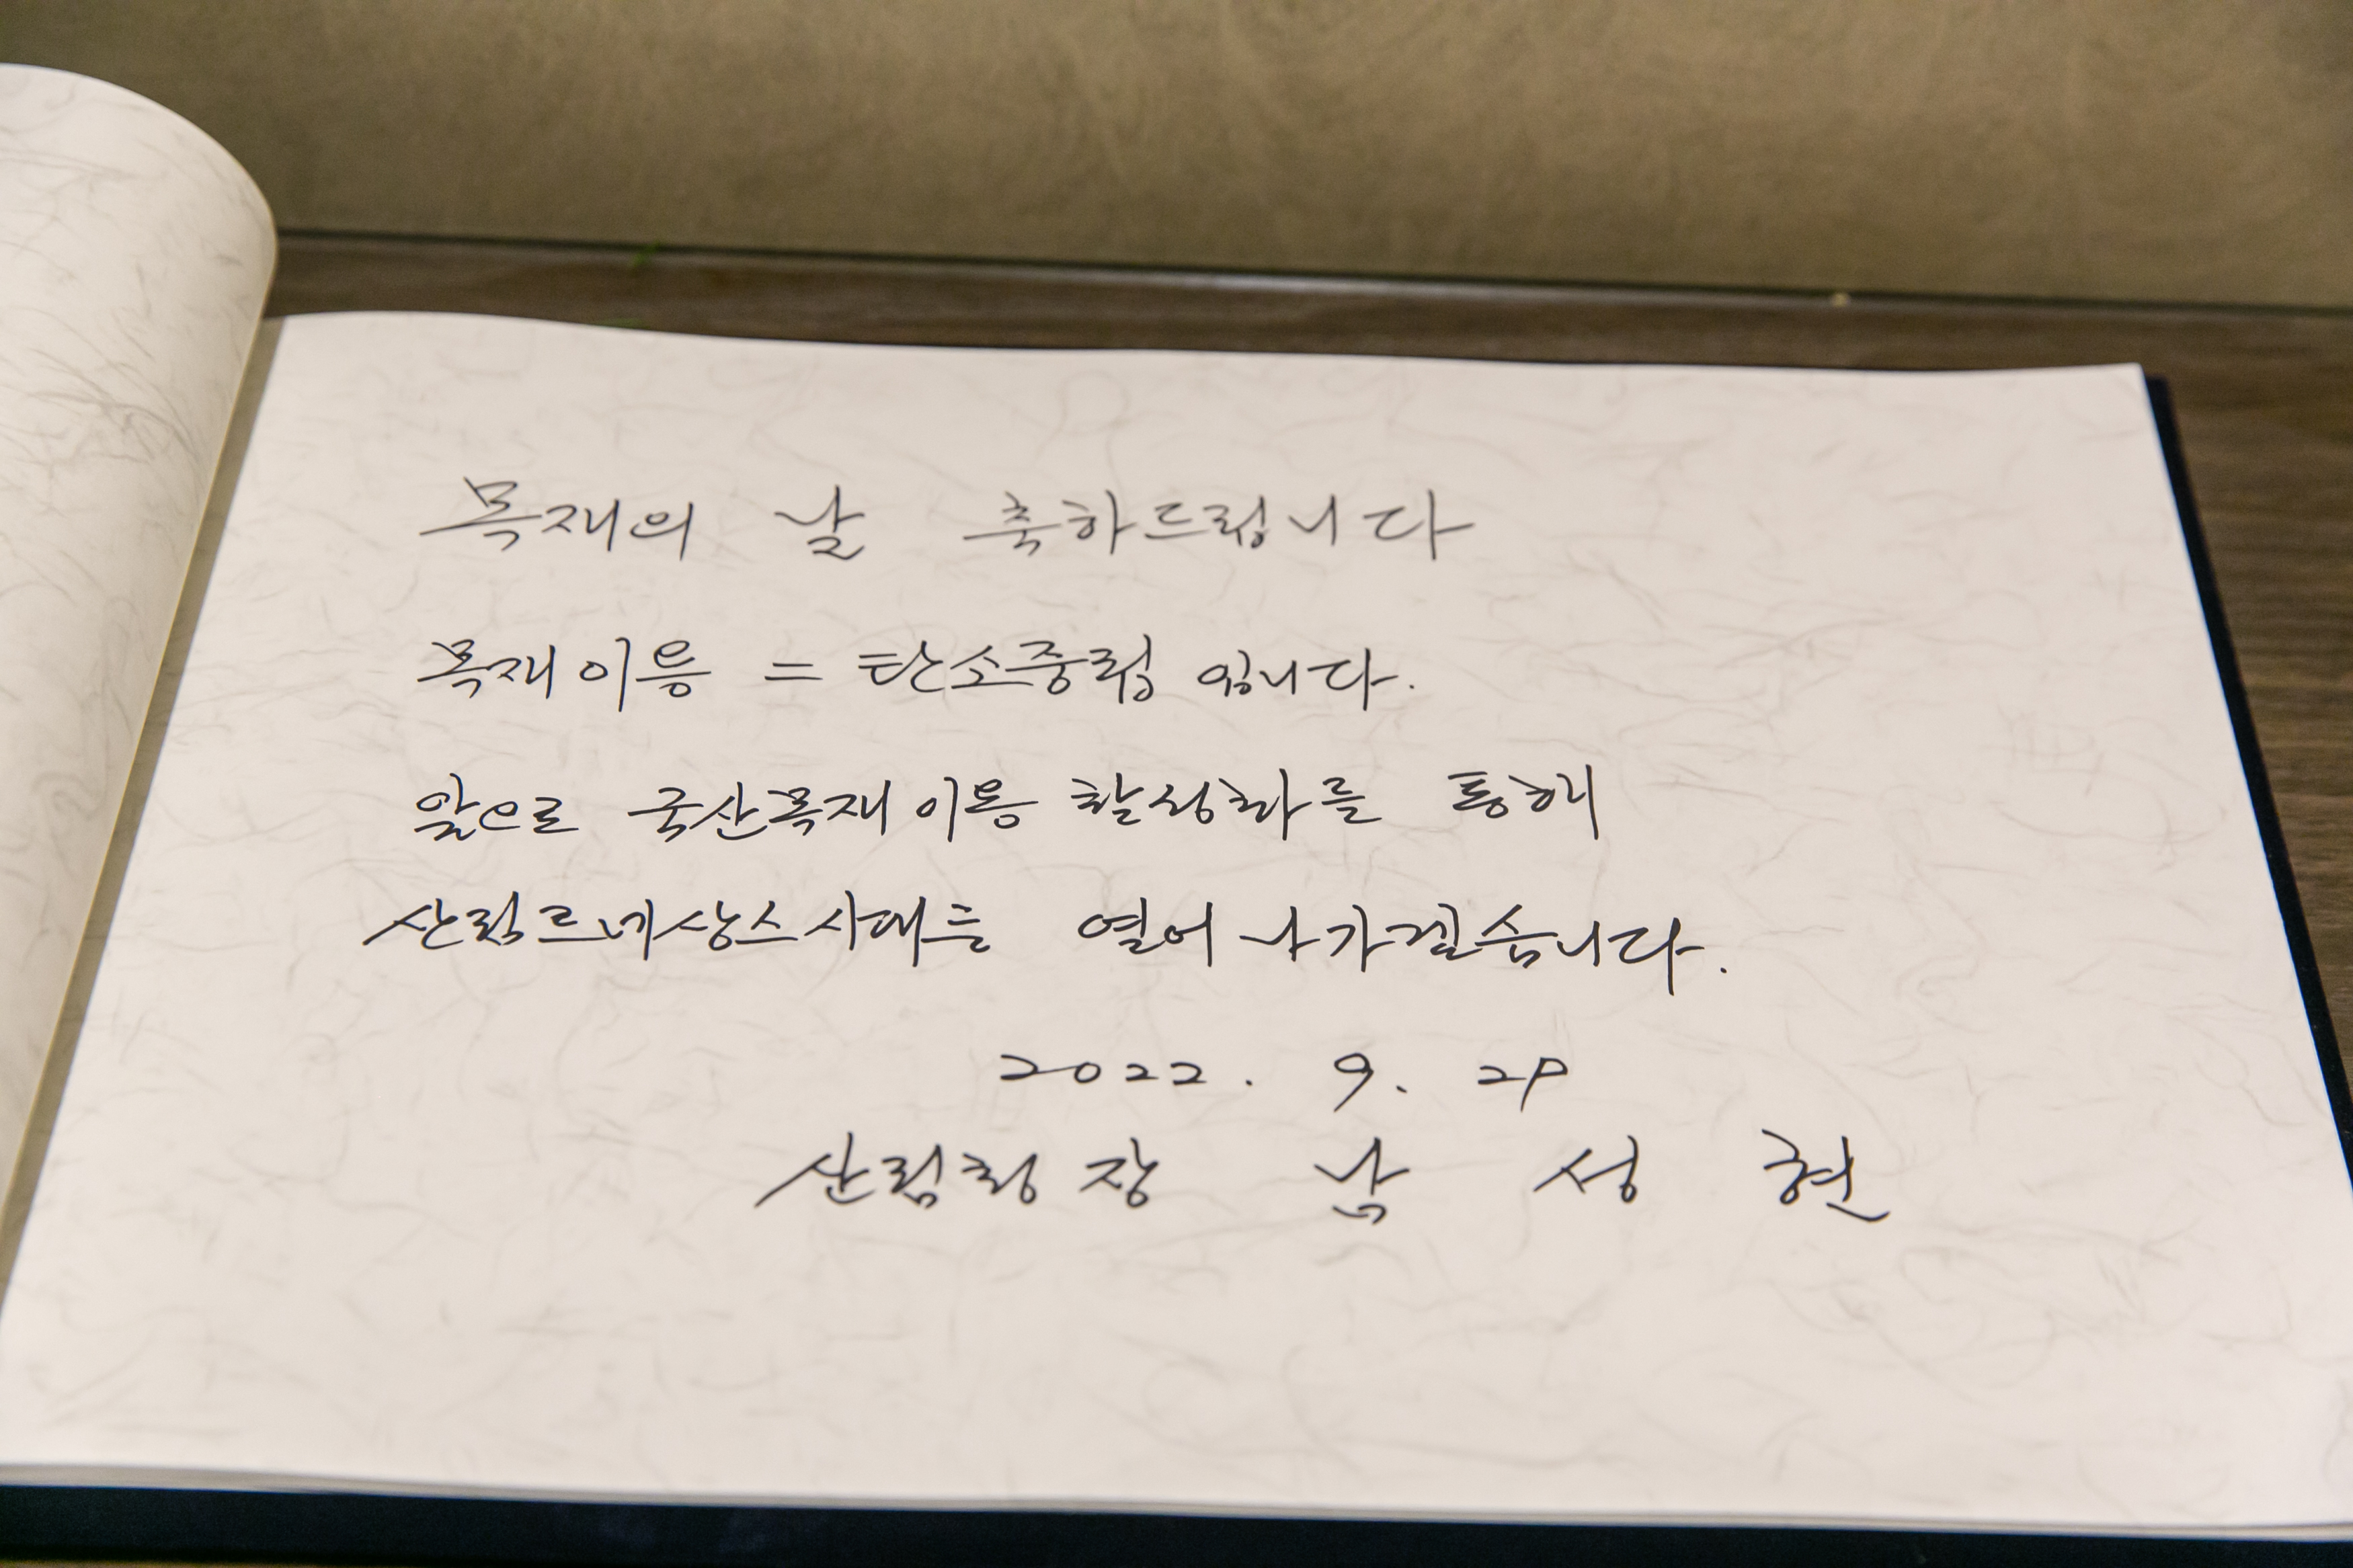 목재의 날 축하드립니다
목재이용 = 탄소중립 입니다.
앞으로 국산목재 이용 활성화를 통해
산림르네상스시대를 열어 나가겠습니다.
2022. 9. 29
산림청장 남성현